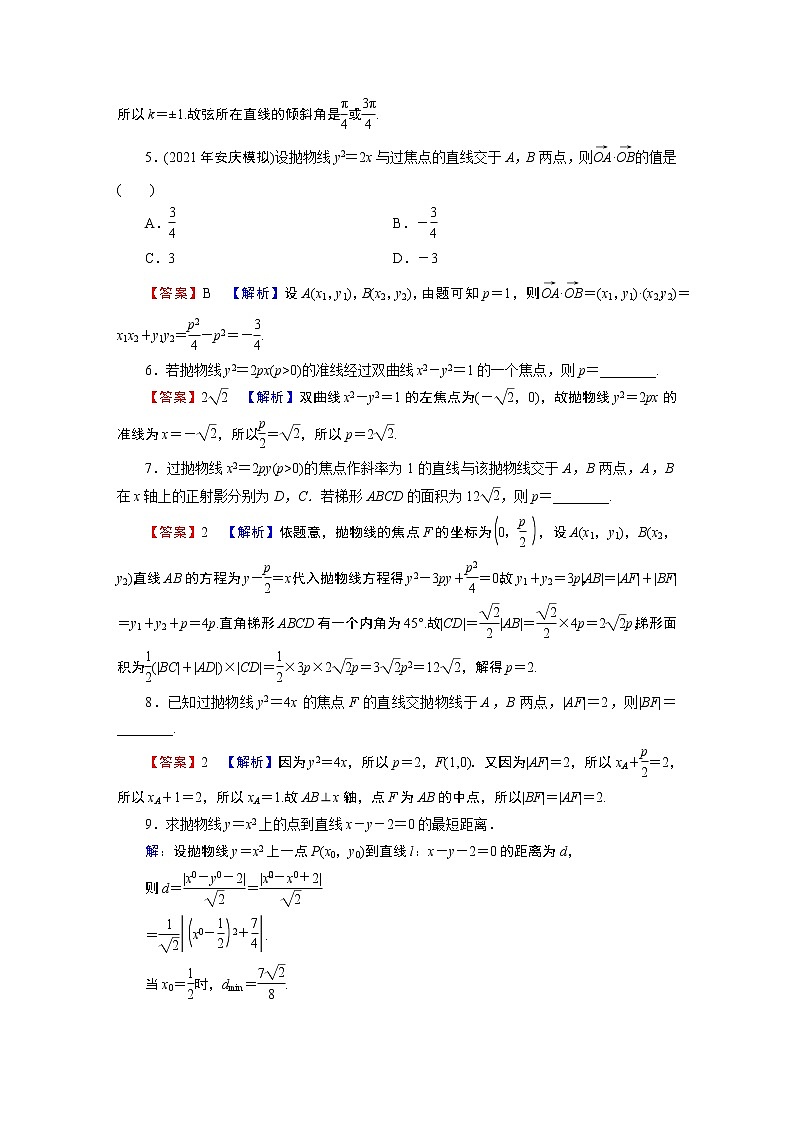 所以 k=±1.故弦所在直线的倾斜角是π/4或3π/4.
5.(2021 年安庆模拟)设抛物线 y²=2x 与过焦点的直线交于 A,B 两点,则OA→·OB→的值是
(　　)
A.3/4　　B.-3/4
C.3　　D.-3
【答案】B 【解析】设 A(x₁,y₁),B(x₂,y₂),由题可知 p=1,则OA→·OB→=(x₁,y₁)·(x₂,y₂)=
x₁x₂+y₁y₂=p²/4-p²=-3/4.
6.若抛物线 y²=2px(p>0)的准线经过双曲线 x²-y²=1 的一个焦点,则 p=________.
【答案】2√2 【解析】双曲线 x²-y²=1 的左焦点为(-√2,0),故抛物线 y²=2px 的
准线为 x=-√2,所以p/2=√2,所以 p=2√2.
7.过抛物线 x²=2py(p>0)的焦点作斜率为 1 的直线与该抛物线交于 A,B 两点,A,B
在 x 轴上的正射影分别为 D,C.若梯形 ABCD 的面积为 12√2,则 p=________.
【答案】2 【解析】依题意,抛物线的焦点 F 的坐标为(0,p/2),设 A(x₁,y₁),B(x₂,
y₂),直线 AB 的方程为 y-p/2=x,代入抛物线方程得 y²-3py+p²/4=0,故 y₁+y₂=3p,|AB|=|AF|+|BF|
=y₁+y₂+p=4p.直角梯形 ABCD 有一个内角为 45°.故|CD|=√2/2|AB|=√2/2×4p=2√2p,梯形面
积为1/2(|BC|+|AD|)×|CD|=1/2×3p×2√2p=3√2p²=12√2,解得 p=2.
8.已知过抛物线 y²=4x 的焦点 F 的直线交抛物线于 A,B 两点,|AF|=2,则|BF|=
________.
【答案】2 【解析】因为 y²=4x,所以 p=2,F(1,0).又因为|AF|=2,所以 x_A+p/2=2,
所以 x_A+1=2,所以 x_A=1.故 AB⊥x 轴,点 F 为 AB 的中点,所以|BF|=|AF|=2.
9.求抛物线 y=x²上的点到直线 x-y-2=0 的最短距离.
解:设抛物线 y=x²上一点 P(x₀,y₀)到直线 l:x-y-2=0 的距离为 d,
则 d=|x0-y0-2|/√2=|x²₀-x0+2|/√2
=1/√2|(x0-1/2)2+7/4|.
当 x₀=1/2时,d_min=7√2/8.